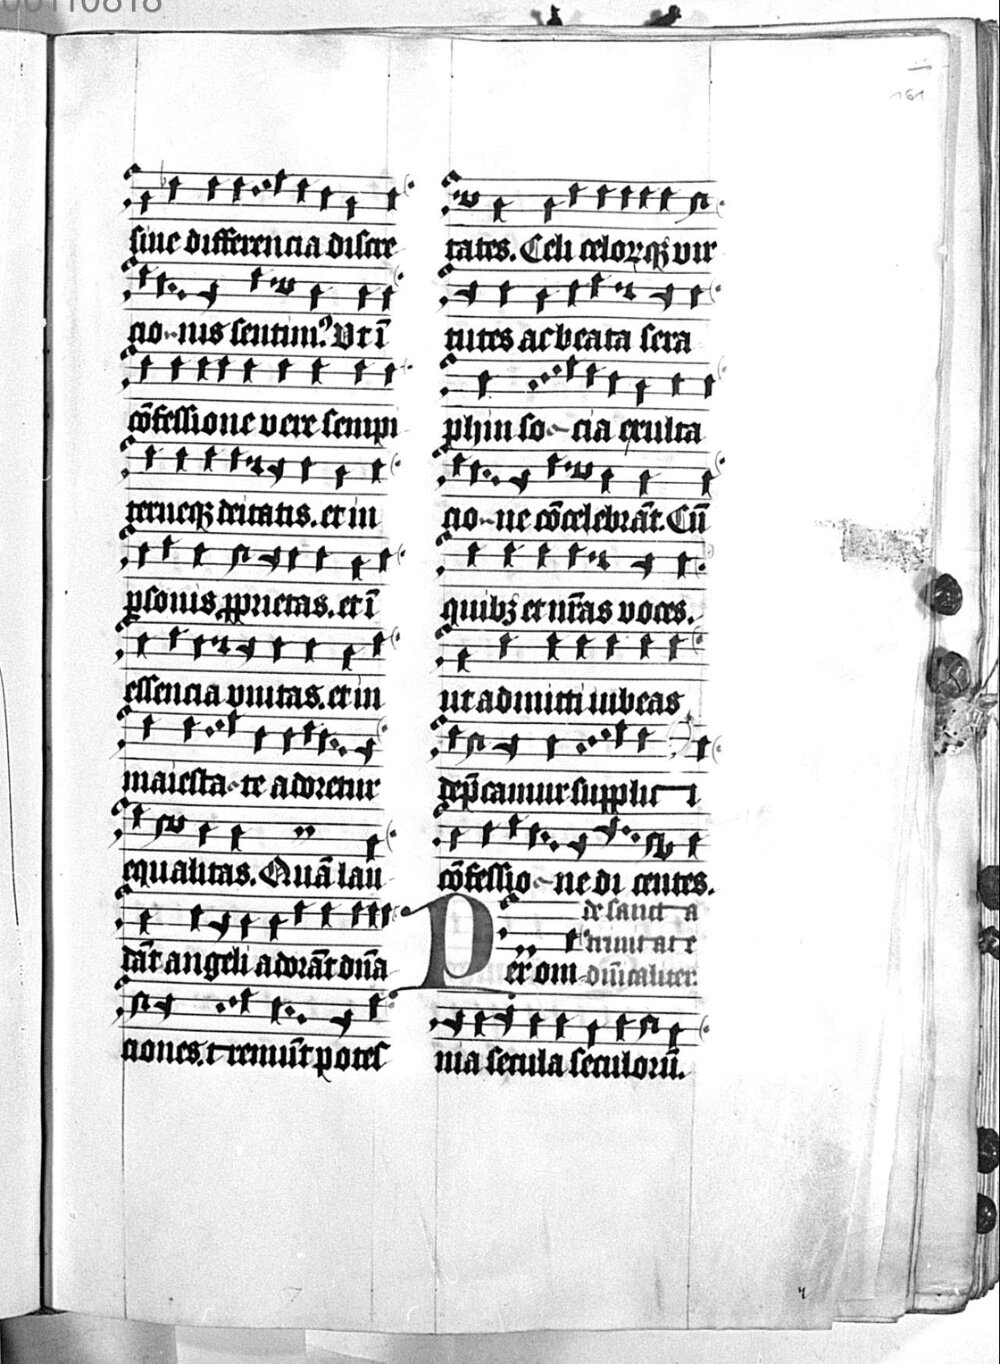 00110818
161
sine differencia discre
cio-nis sentim⁹. Vt ī
cōfessione vere sempi
terneqꝫ deitatis. et in
ꝑsonis ꝓprietas. et ī
essencia vnitas. et in
maiesta-te adoretur
equalitas. Quā lau
dāt angeli adorāt dn̄a
ciones. t remūt potes
tates. Celi celorꝝqꝫ vir
tutes ac beata sera
phin so-cia exulta
cio-ne cōcelebrāt. Cū
quibꝫ et nr̄as voces.
ut admitti iubeas
dep̄camur supplici
cōfessio-ne dicentes.
de sancta
trinitate
Per om dn̄icaliter.
nia secula seculorū.